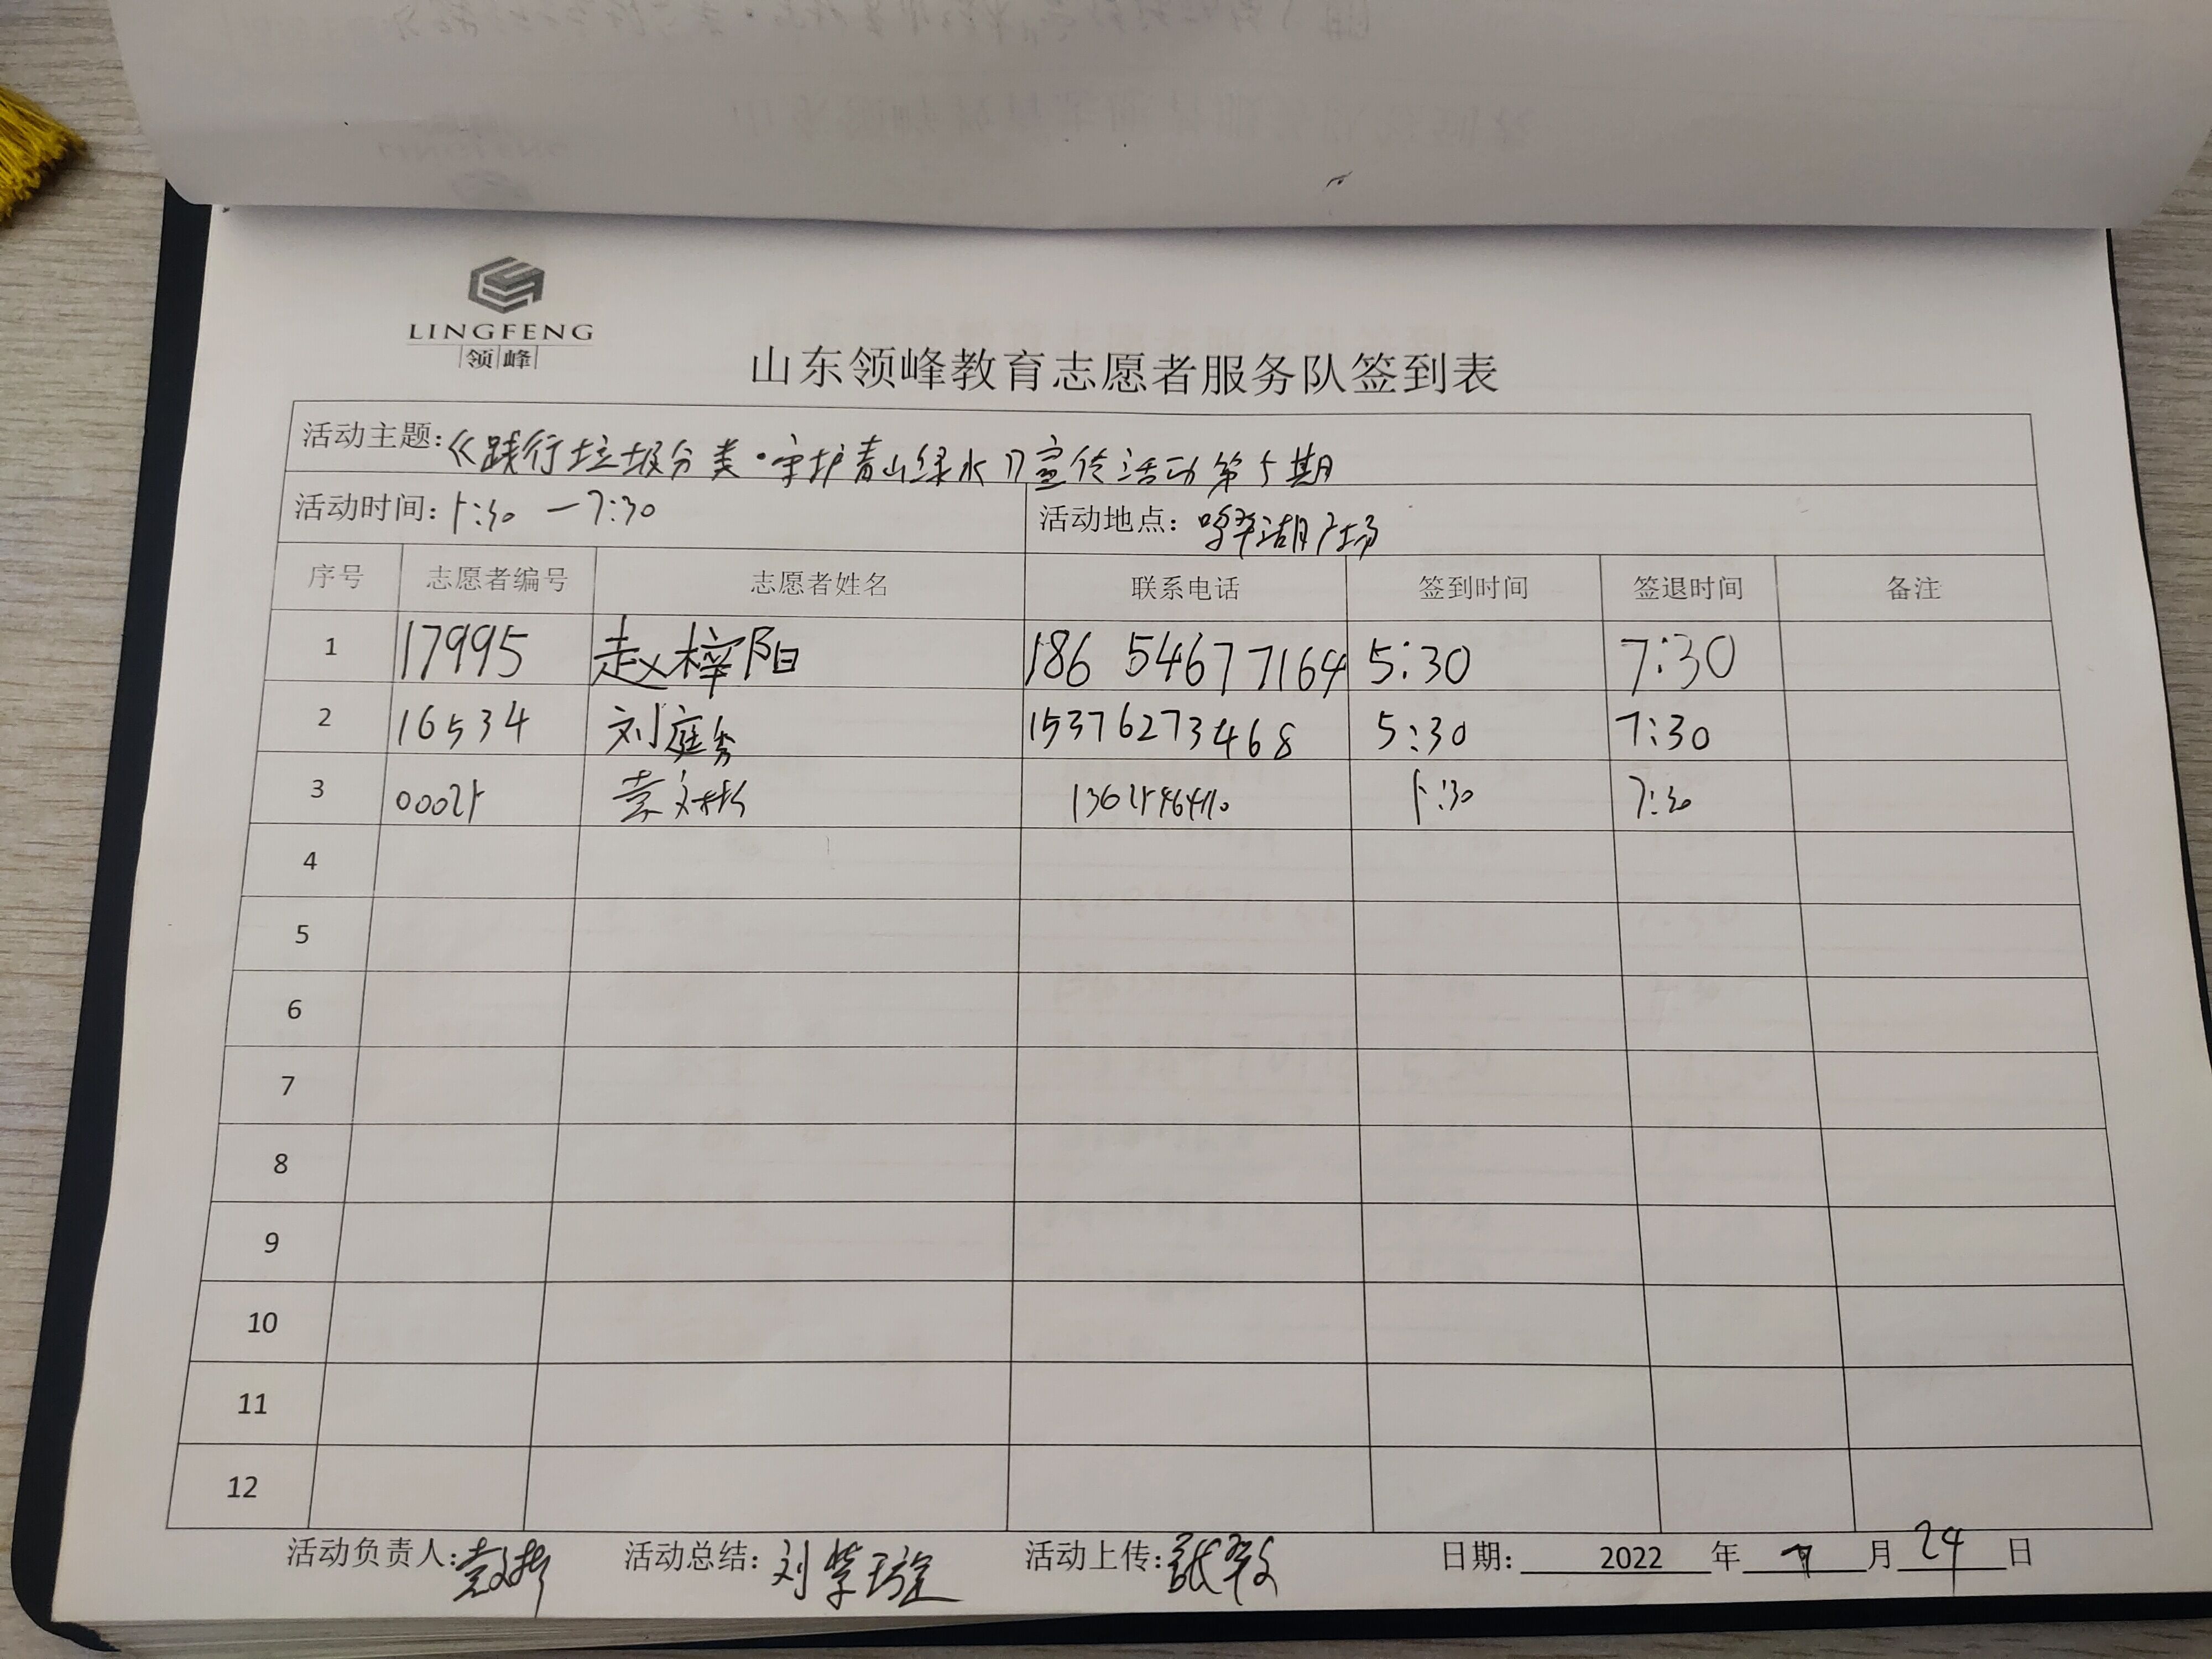 LINGFENG
领峰
山东领峰教育志愿者服务队签到表
活动主题:《践行垃圾分类·守护青山绿水》宣传活动第5期
活动时间: 5:30 — 7:30 活动地点: 广场
序号 志愿者编号 志愿者姓名 联系电话 签到时间 签退时间 备注
1 17995 赵梓阳 186 54677164 5:30 7:30
2 16534 刘庭秀 15376273468 5:30 7:30
3 00025 5:30 7:30
4
5
6
7
8
9
10
11
12
活动负责人: 活动总结: 刘紫璇 活动上传: 日期: 2022 年 7 月 24 日